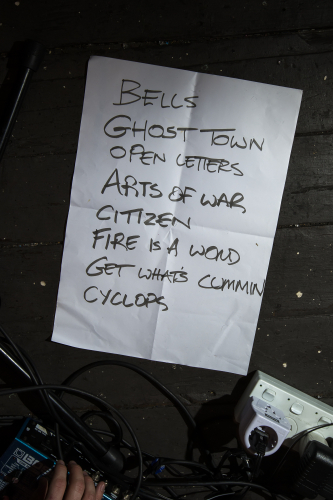 BELLS
GHOST TOWN
OPEN LETTERS
ARTS OF WAR
CITIZEN
FIRE IS A WORD
GET WHAT'S CUMMIN
CYCLOPS